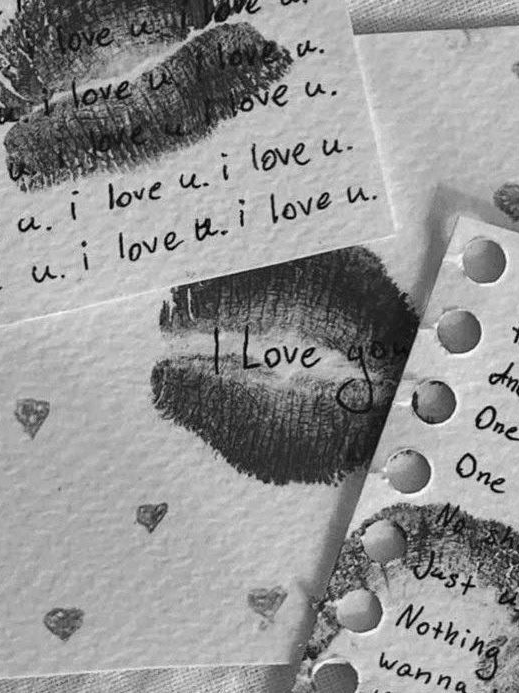 love u. i love u.
u. i love u. i love u.
u. i love u. i love u.
u. i love u. i love u.
u. i love u. i love u.
I Love you
One
One
No sh
Just u
Nothing
wanna